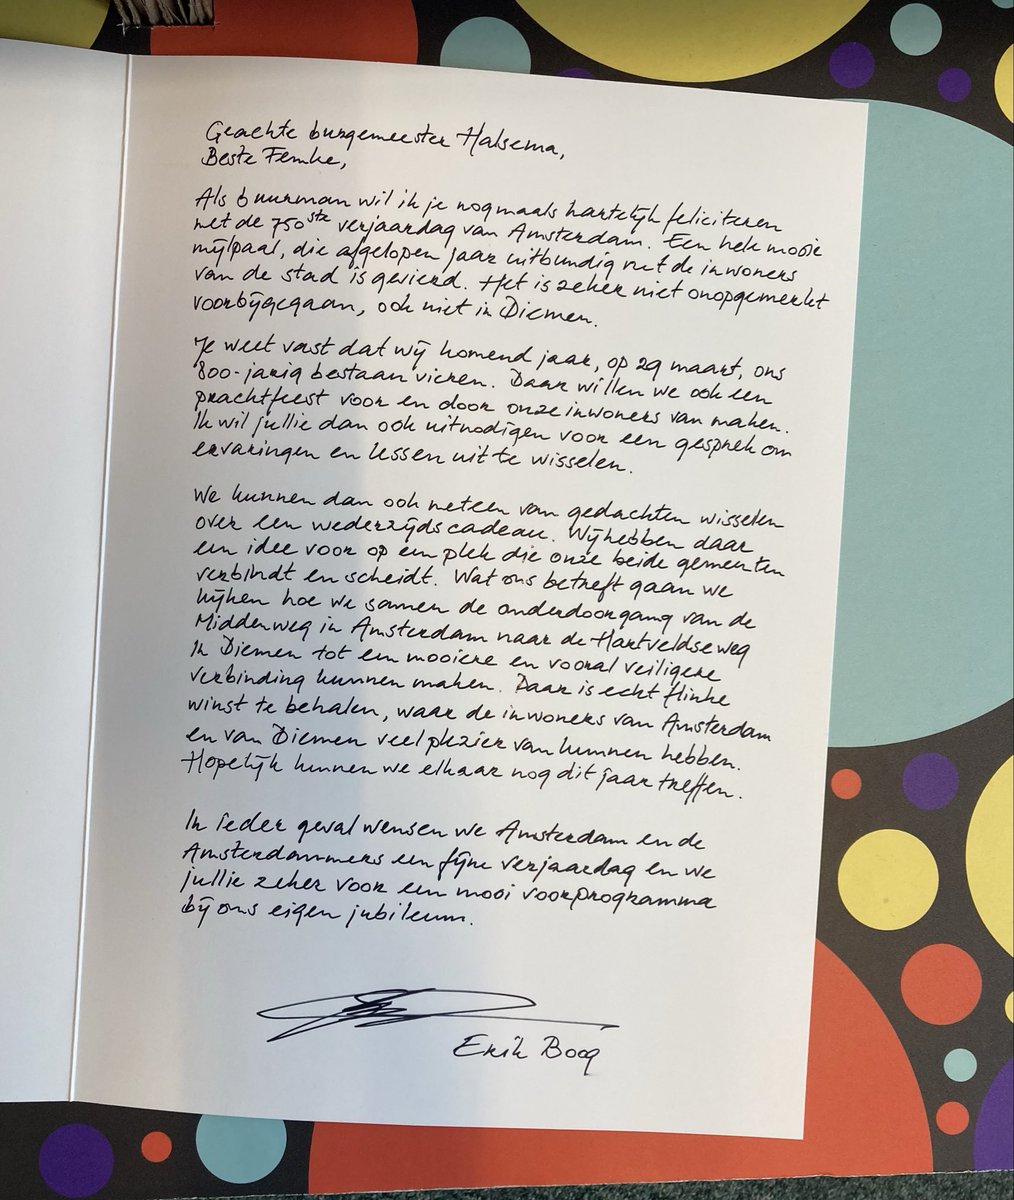 Geachte burgemeester Halsema,
Beste Femke,
Als buurman wil ik je nogmaals hartelijk feliciteren
met de 750ste verjaardag van Amsterdam. Een hele mooie
mijlpaal, die afgelopen jaar uitbundig met de inwoners
van de stad is gevierd. Het is zeker niet onopgemerkt
voorbijgegaan, ook niet in Diemen.
Je weet vast dat wij komend jaar, op 29 maart, ons
800-jarig bestaan vieren. Daar willen we ook een
prachtfeest voor en door onze inwoners van maken.
Ik wil jullie dan ook uitnodigen voor een gesprek om
ervaringen en lessen uit te wisselen.
We kunnen dan ook meteen van gedachten wisselen
over een wederzijds cadeau. Wij hebben daar
een idee voor op een plek die onze beide gemeenten
verbindt en scheidt. Wat ons betreft gaan we
kijken hoe we samen de onderdoorgang van de
Middenweg in Amsterdam naar de Hartveldseweg
in Diemen tot een mooiere en vooral veiligere
verbinding kunnen maken. Daar is echt flinke
winst te behalen, waar de inwoners van Amsterdam
en van Diemen veel plezier van kunnen hebben.
Hopelijk kunnen we elkaar nog dit jaar treffen.
In ieder geval wensen we Amsterdam en de
Amsterdammers een fijne verjaardag en we
jullie zeker voor een mooi voorprogramma
bij ons eigen jubileum.
Erik Boog